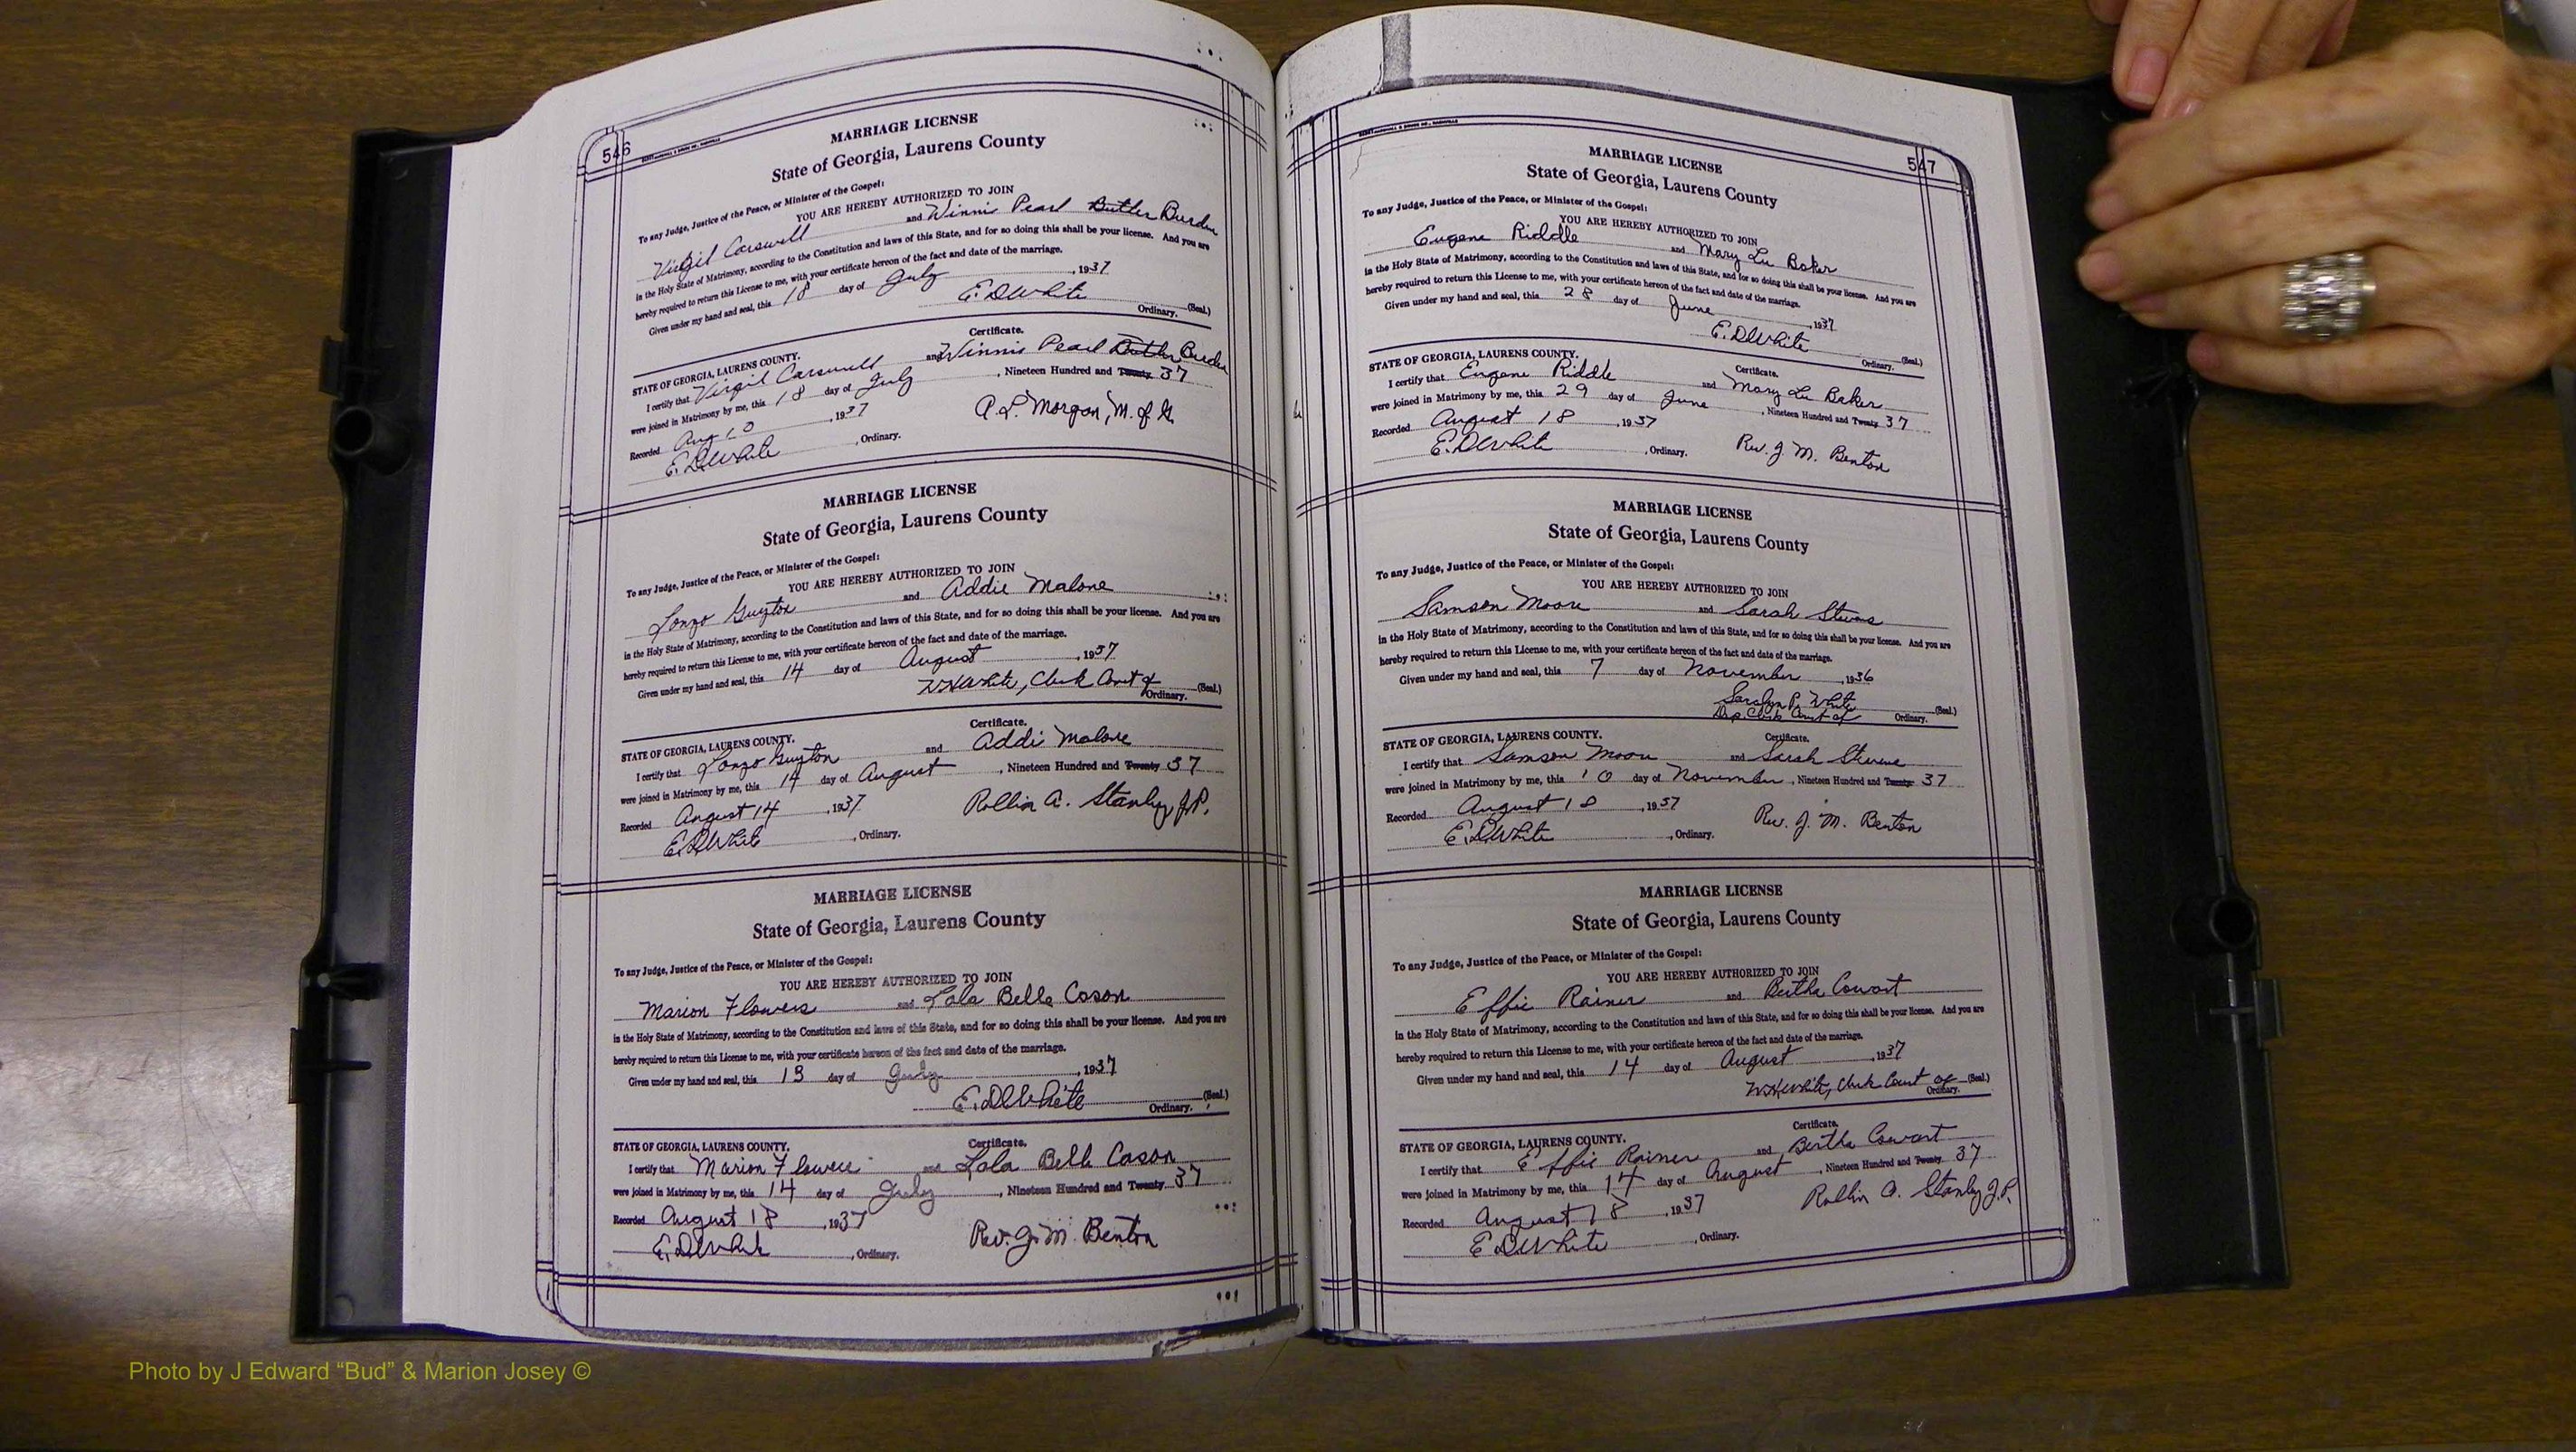 546
MARRIAGE LICENSE
State of Georgia, Laurens County
To any Judge, Justice of the Peace, or Minister of the Gospel:
YOU ARE HEREBY AUTHORIZED TO JOIN
Virgil Carswell and Winnis Pearl Butler Burden
in the Holy State of Matrimony, according to the Constitution and laws of this State, and for so doing this shall be your license. And you are
hereby required to return this License to me, with your certificate hereon of the fact and date of the marriage.
Given under my hand and seal, this 18 day of July, 1937
E. D White (Seal.)
Ordinary.
Certificate.
STATE OF GEORGIA, LAURENS COUNTY.
I certify that Virgil Carswell and Winnis Pearl Butler Burden
were joined in Matrimony by me, this 18 day of July, Nineteen Hundred and Twenty 37
Recorded Aug 10, 1937
A. L. Morgan, M. of G.
E. D White, Ordinary.
MARRIAGE LICENSE
State of Georgia, Laurens County
To any Judge, Justice of the Peace, or Minister of the Gospel:
YOU ARE HEREBY AUTHORIZED TO JOIN
Lonzo Guyton and Addie Malone
in the Holy State of Matrimony, according to the Constitution and laws of this State, and for so doing this shall be your license. And you are
hereby required to return this License to me, with your certificate hereon of the fact and date of the marriage.
Given under my hand and seal, this 14 day of August, 1937
White, Clerk Court of (Seal.)
Ordinary.
Certificate.
STATE OF GEORGIA, LAURENS COUNTY.
I certify that Lonzo Guyton and Addie Malone
were joined in Matrimony by me, this 14 day of August, Nineteen Hundred and Twenty 37
Recorded August 14, 1937
Rollin A. Stanley J.P.
E. D White, Ordinary.
MARRIAGE LICENSE
State of Georgia, Laurens County
To any Judge, Justice of the Peace, or Minister of the Gospel:
YOU ARE HEREBY AUTHORIZED TO JOIN
Marion Flowers and Lola Belle Cason
in the Holy State of Matrimony, according to the Constitution and laws of this State, and for so doing this shall be your license. And you are
hereby required to return this License to me, with your certificate hereon of the fact and date of the marriage.
Given under my hand and seal, this 13 day of July, 1937
E. D White (Seal.)
Ordinary.
Certificate.
STATE OF GEORGIA, LAURENS COUNTY.
I certify that Marion Flowers and Lola Belle Cason
were joined in Matrimony by me, this 14 day of July, Nineteen Hundred and Twenty 37
Recorded August 18, 1937
Rev. J. M. Benton
E. D White, Ordinary.
547
MARRIAGE LICENSE
State of Georgia, Laurens County
To any Judge, Justice of the Peace, or Minister of the Gospel:
YOU ARE HEREBY AUTHORIZED TO JOIN
Eugene Riddle and Mary Lu Baker
in the Holy State of Matrimony, according to the Constitution and laws of this State, and for so doing this shall be your license. And you are
hereby required to return this License to me, with your certificate hereon of the fact and date of the marriage.
Given under my hand and seal, this 28 day of June, 1937
E. D White (Seal.)
Ordinary.
Certificate.
STATE OF GEORGIA, LAURENS COUNTY.
I certify that Eugene Riddle and Mary Lu Baker
were joined in Matrimony by me, this 29 day of June, Nineteen Hundred and Twenty 37
Recorded August 18, 1937
E. D White, Ordinary.
Rev. J. M. Benton
MARRIAGE LICENSE
State of Georgia, Laurens County
To any Judge, Justice of the Peace, or Minister of the Gospel:
YOU ARE HEREBY AUTHORIZED TO JOIN
Samson Moore and Sarah Stevens
in the Holy State of Matrimony, according to the Constitution and laws of this State, and for so doing this shall be your license. And you are
hereby required to return this License to me, with your certificate hereon of the fact and date of the marriage.
Given under my hand and seal, this 7 day of November, 1936
Saralyn P. White (Seal.)
Dep. Clerk Court of Ordinary.
Certificate.
STATE OF GEORGIA, LAURENS COUNTY.
I certify that Samson Moore and Sarah Stevens
were joined in Matrimony by me, this 10 day of November, Nineteen Hundred and Twenty 37
Recorded August 18, 1937
Rev. J. M. Benton
E. D White, Ordinary.
MARRIAGE LICENSE
State of Georgia, Laurens County
To any Judge, Justice of the Peace, or Minister of the Gospel:
YOU ARE HEREBY AUTHORIZED TO JOIN
Effie Rainer and Bertha Cowart
in the Holy State of Matrimony, according to the Constitution and laws of this State, and for so doing this shall be your license. And you are
hereby required to return this License to me, with your certificate hereon of the fact and date of the marriage.
Given under my hand and seal, this 14 day of August, 1937
White, Clerk Court of (Seal.)
Ordinary.
Certificate.
STATE OF GEORGIA, LAURENS COUNTY.
I certify that Effie Rainer and Bertha Cowart
were joined in Matrimony by me, this 14 day of August, Nineteen Hundred and Twenty 37
Recorded August 18, 1937
Rollin A. Stanley J.P.
E. D White, Ordinary.
Photo by J Edward “Bud” & Marion Josey ©